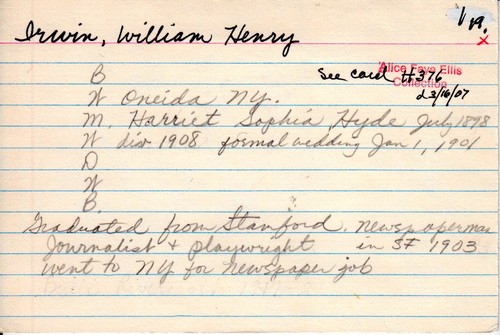 V 19.
Irwin, William Henry
x
Alice Faye Ellis
Collection
See card #376
23/16/07
B
W Oneida NY.
M. Harriet Sophia Hyde July 1898
W div 1908 formal wedding Jan 1, 1901
D
W
B.
Graduated from Stanford. newspaperman
Journalist + playwright in SF 1903
went to NY for newspaper job